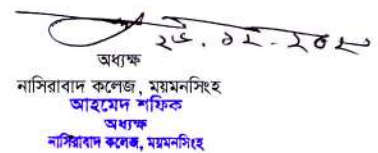 অধ্যক্ষ
নাসিরাবাদ কলেজ, ময়মনসিংহ
আহমেদ শফিক
অধ্যক্ষ
নাসিরাবাদ কলেজ, ময়মনসিংহ